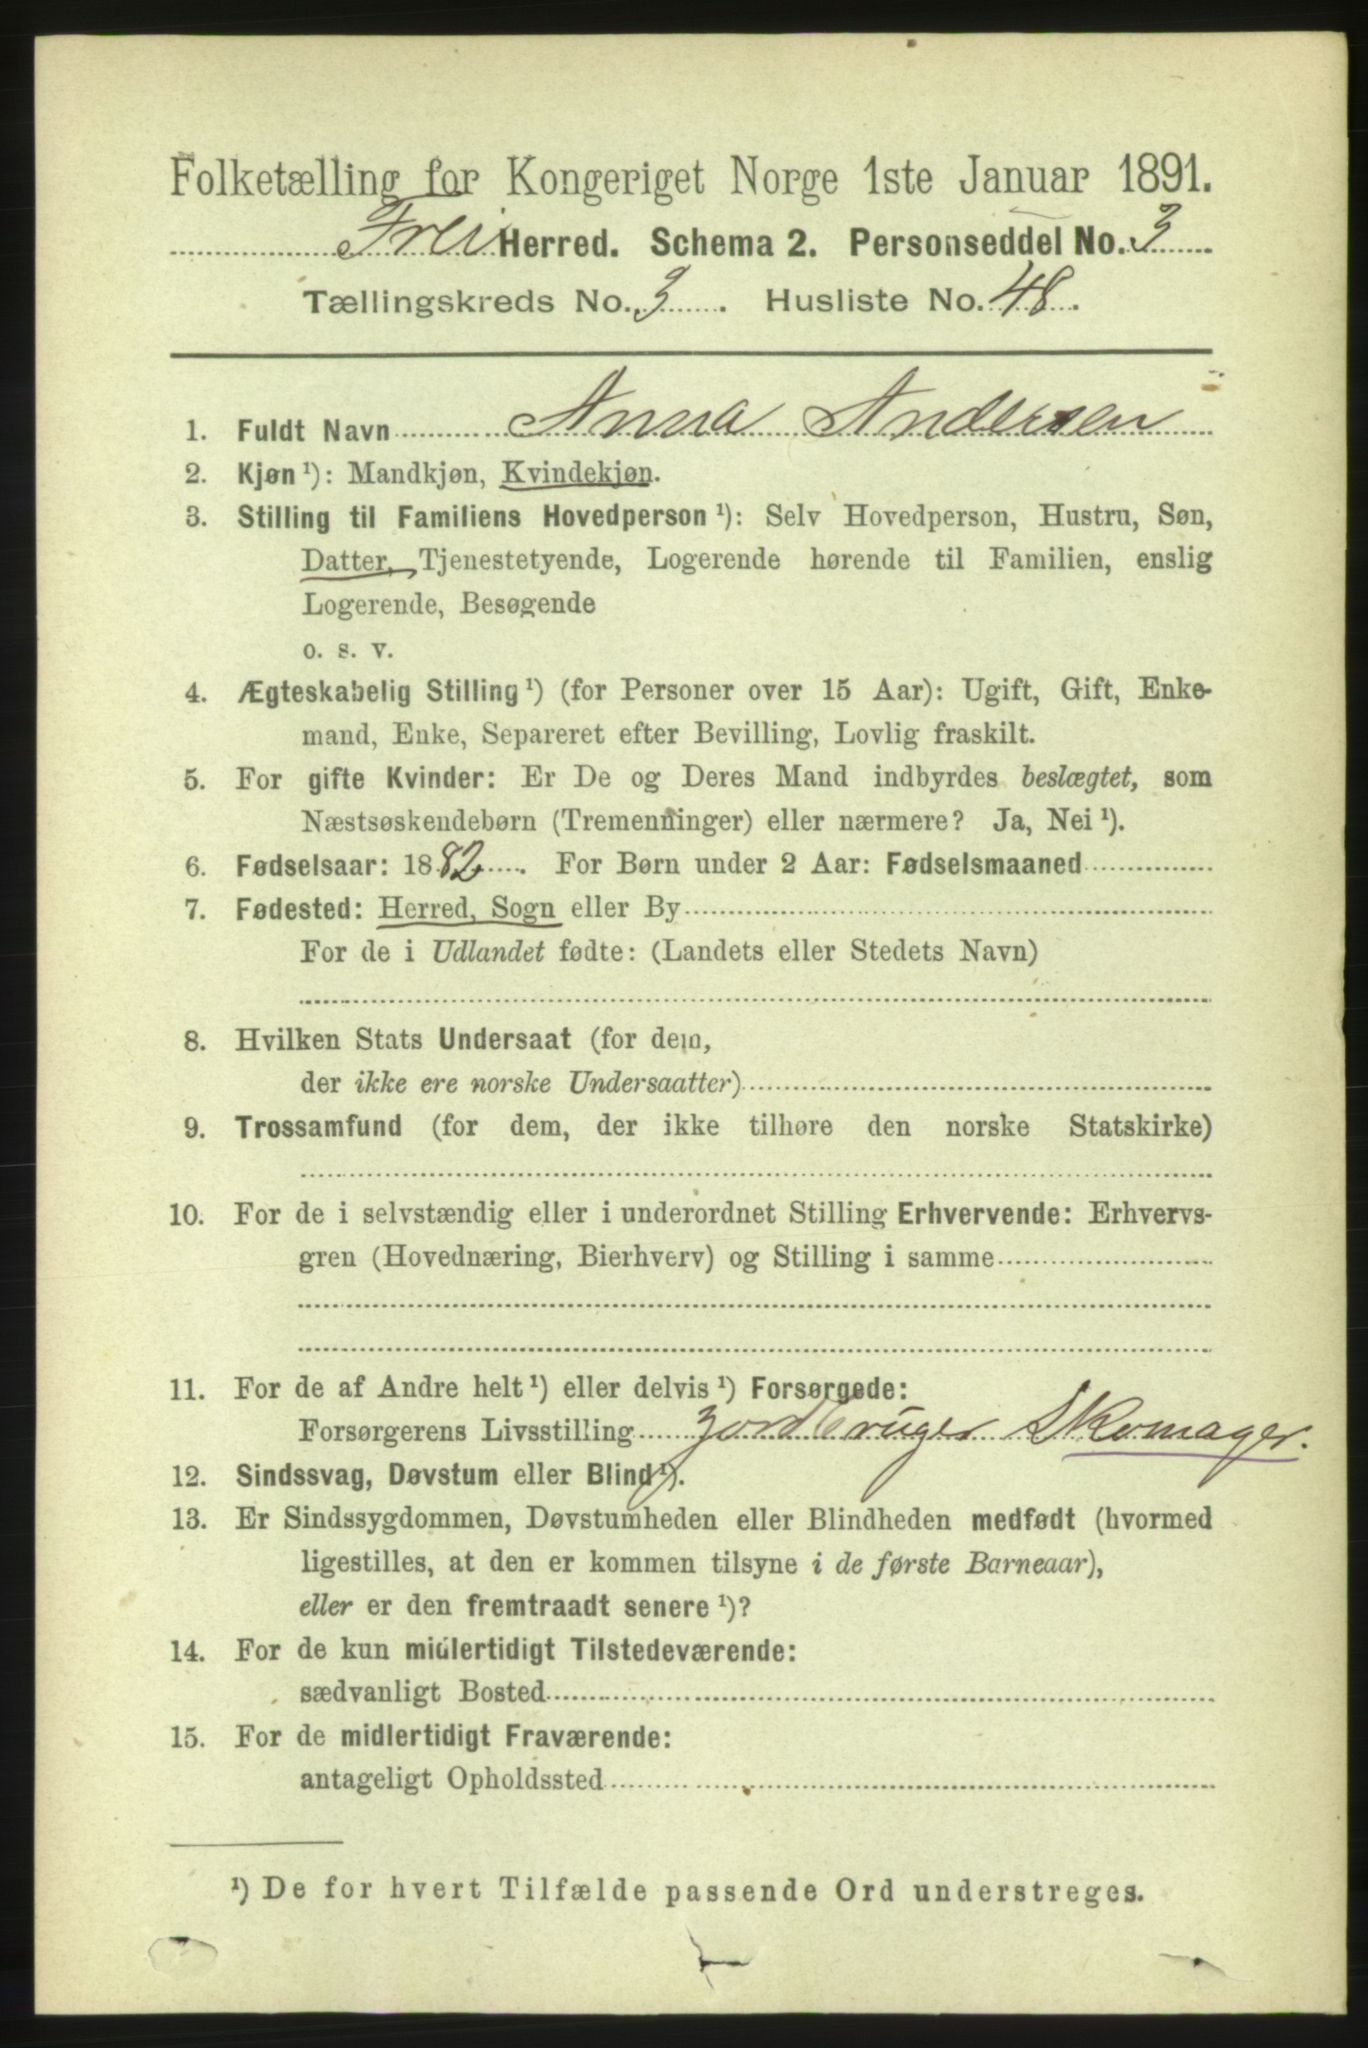 Folketælling for Kongeriget Norge 1ste Januar 1891.
Frei Herred. Schema 2. Personseddel No. 3
Tællingskreds No. 3. Husliste No. 48.
1. Fuldt Navn Anna Andersen
2. Kjøn ¹): Mandkjøn, Kvindekjøn.
3. Stilling til Familiens Hovedperson ¹): Selv Hovedperson, Hustru, Søn,
Datter, Tjenestetyende, Logerende hørende til Familien, enslig
Logerende, Besøgende
o. s. v.
4. Ægteskabelig Stilling ¹) (for Personer over 15 Aar): Ugift, Gift, Enke-
mand, Enke, Separeret efter Bevilling, Lovlig fraskilt.
5. For gifte Kvinder: Er De og Deres Mand indbyrdes beslægtet, som
Næstsøskendebørn (Tremenninger) eller nærmere? Ja, Nei ¹).
6. Fødselsaar: 1882. For Børn under 2 Aar: Fødselsmaaned
7. Fødested: Herred, Sogn eller By
For de i Udlandet fødte: (Landets eller Stedets Navn)
8. Hvilken Stats Undersaat (for dem,
der ikke ere norske Undersaatter)
9. Trossamfund (for dem, der ikke tilhøre den norske Statskirke)
10. For de i selvstændig eller i underordnet Stilling Erhvervende: Erhvervs-
gren (Hovednæring, Bierhverv) og Stilling i samme
11. For de af Andre helt ¹) eller delvis ¹) Forsørgede:
Forsørgerens Livsstilling Jordbruger Skomager.
12. Sindssvag, Døvstum eller Blind ¹).
13. Er Sindssygdommen, Døvstumheden eller Blindheden medfødt (hvormed
ligestilles, at den er kommen tilsyne i de første Barneaar),
eller er den fremtraadt senere ¹)?
14. For de kun midlertidigt Tilstedeværende:
sædvanligt Bosted
15. For de midlertidigt Fraværende:
antageligt Opholdssted
¹) De for hvert Tilfælde passende Ord understreges.